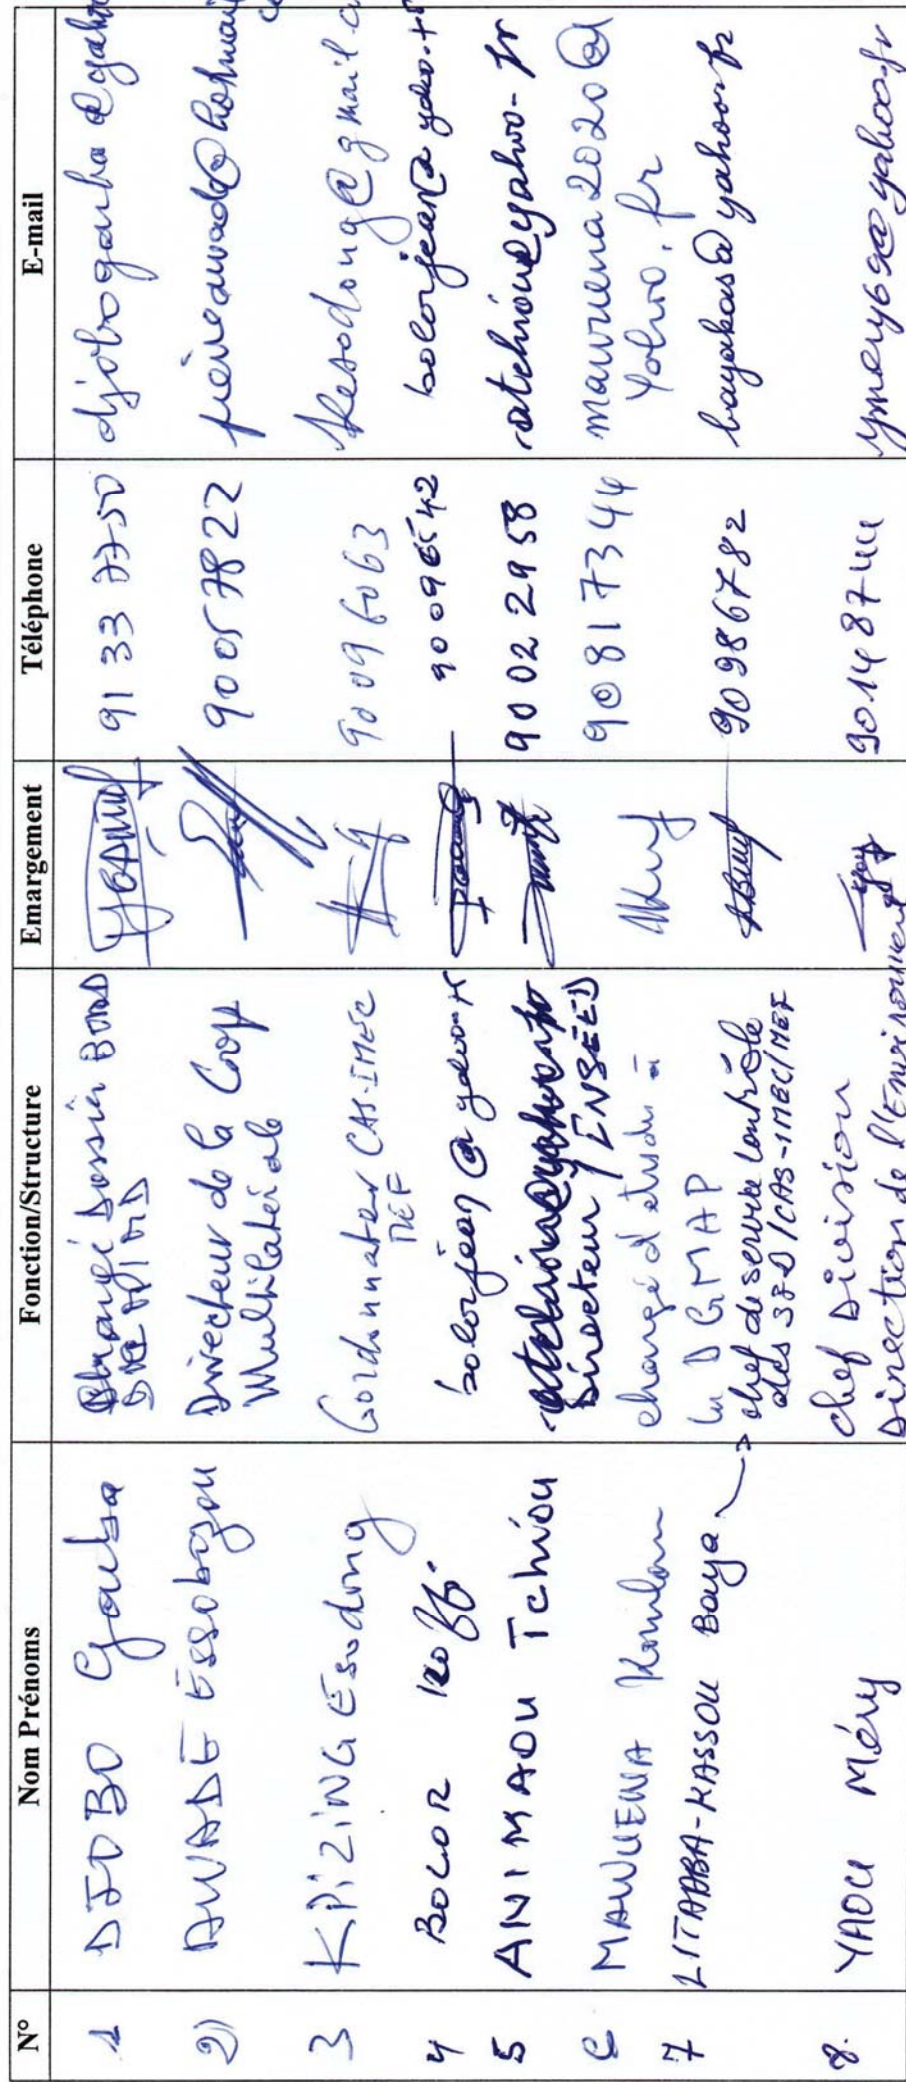 N° Nom Prénoms Fonction/Structure Emargement Téléphone E-mail
1 DJOBO Gouba Chargé Dossier BOAD 91 33 77 50
2) AWADE Essobozou Directeur de la Coop Multilatérale 90057822
3 KPIZING Esodong Coordinateur CAS-IMEC MEF 90096063 kesodong@gmail.c
4 BOLOR Koffi bolorjean@yahoo.fr 90096542 bolorjean@yahoo.fr
5 ANIMAOU Tchiou Directeur / INSEED 90 02 29 58 atchiou@yahoo.fr
6 MAWUENA Komlan chargé d'études à la DGMAP 90817344 mawuena2020@yahoo.fr
7 LITABA-KASSOU Baya chef de service contrôle des SFD/CAS-IMEC/MEF 90986782 bayakas@yahoo.fr
8. YAOU Méry chef Division Direction de l'Environnement